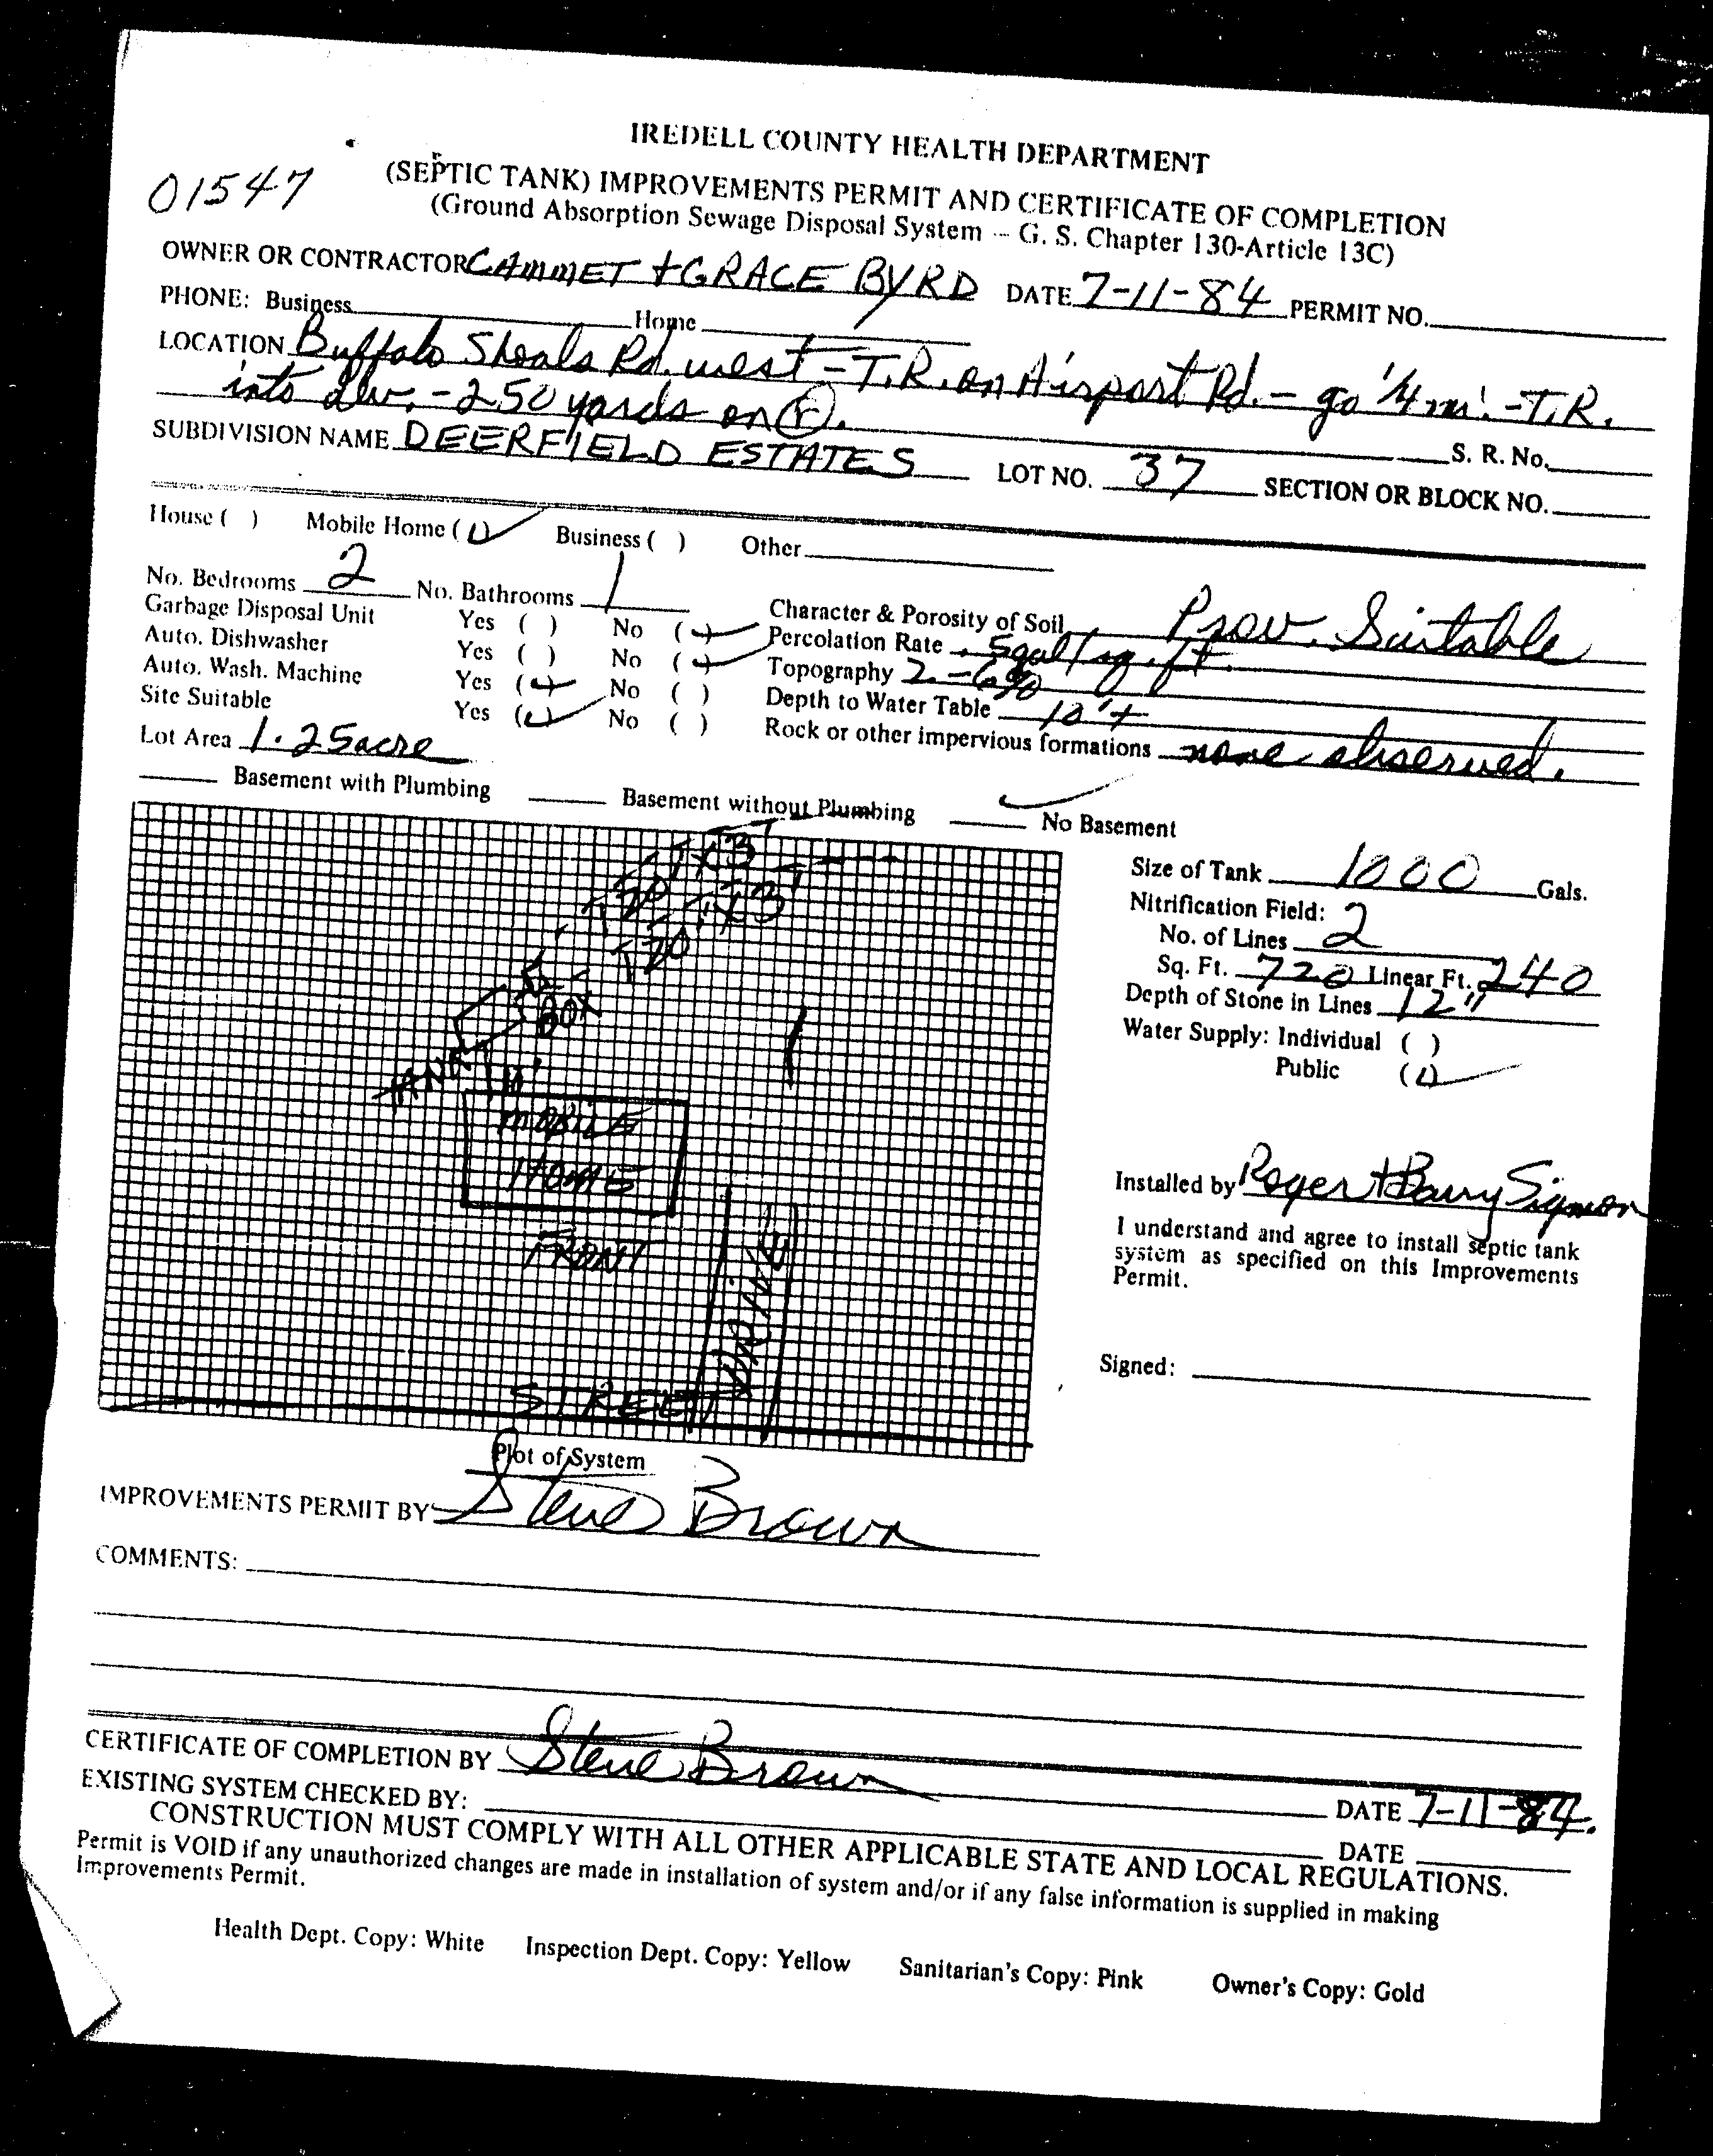 IREDELL COUNTY HEALTH DEPARTMENT
01547
(SEPTIC TANK) IMPROVEMENTS PERMIT AND CERTIFICATE OF COMPLETION
(Ground Absorption Sewage Disposal System - G. S. Chapter 130-Article 13C)
OWNER OR CONTRACTOR CAMMET + GRACE BYRD DATE 7-11-84 PERMIT NO.
PHONE: Business Home
LOCATION Buffalo Shoals Rd. west - T.R. on Airport Rd. - go 1/4 mi. - T.R.
into dev. - 250 yards on (r).
S. R. No.
SUBDIVISION NAME DEERFIELD ESTATES LOT NO. 37 SECTION OR BLOCK NO.
House ( ) Mobile Home (✓) Business ( ) Other
No. Bedrooms 2 No. Bathrooms 1
Garbage Disposal Unit Yes ( ) No (✓)
Auto. Dishwasher Yes ( ) No (✓)
Auto. Wash. Machine Yes (✓) No ( )
Site Suitable Yes (✓) No ( )
Lot Area 1.25 acre
Character & Porosity of Soil Prov. Suitable
Percolation Rate .5 gal/sq. ft.
Topography 2-6%
Depth to Water Table 10'+
Rock or other impervious formations none observed.
Basement with Plumbing Basement without Plumbing ✓ No Basement
BOX
TANK
10'
MOBILE
HOME
FRONT
DRIVE
STREET
Plot of System
Size of Tank 1000 Gals.
Nitrification Field:
No. of Lines 2
Sq. Ft. 720 Linear Ft. 240
Depth of Stone in Lines 12"
Water Supply: Individual ( )
Public (✓)
Installed by Roger + Barry Sigmon
I understand and agree to install septic tank
system as specified on this Improvements
Permit.
Signed:
IMPROVEMENTS PERMIT BY Steve Brown
COMMENTS:
CERTIFICATE OF COMPLETION BY Steve Brown DATE 7-11-84.
EXISTING SYSTEM CHECKED BY: DATE
CONSTRUCTION MUST COMPLY WITH ALL OTHER APPLICABLE STATE AND LOCAL REGULATIONS.
Permit is VOID if any unauthorized changes are made in installation of system and/or if any false information is supplied in making
Improvements Permit.
Health Dept. Copy: White Inspection Dept. Copy: Yellow Sanitarian's Copy: Pink Owner's Copy: Gold